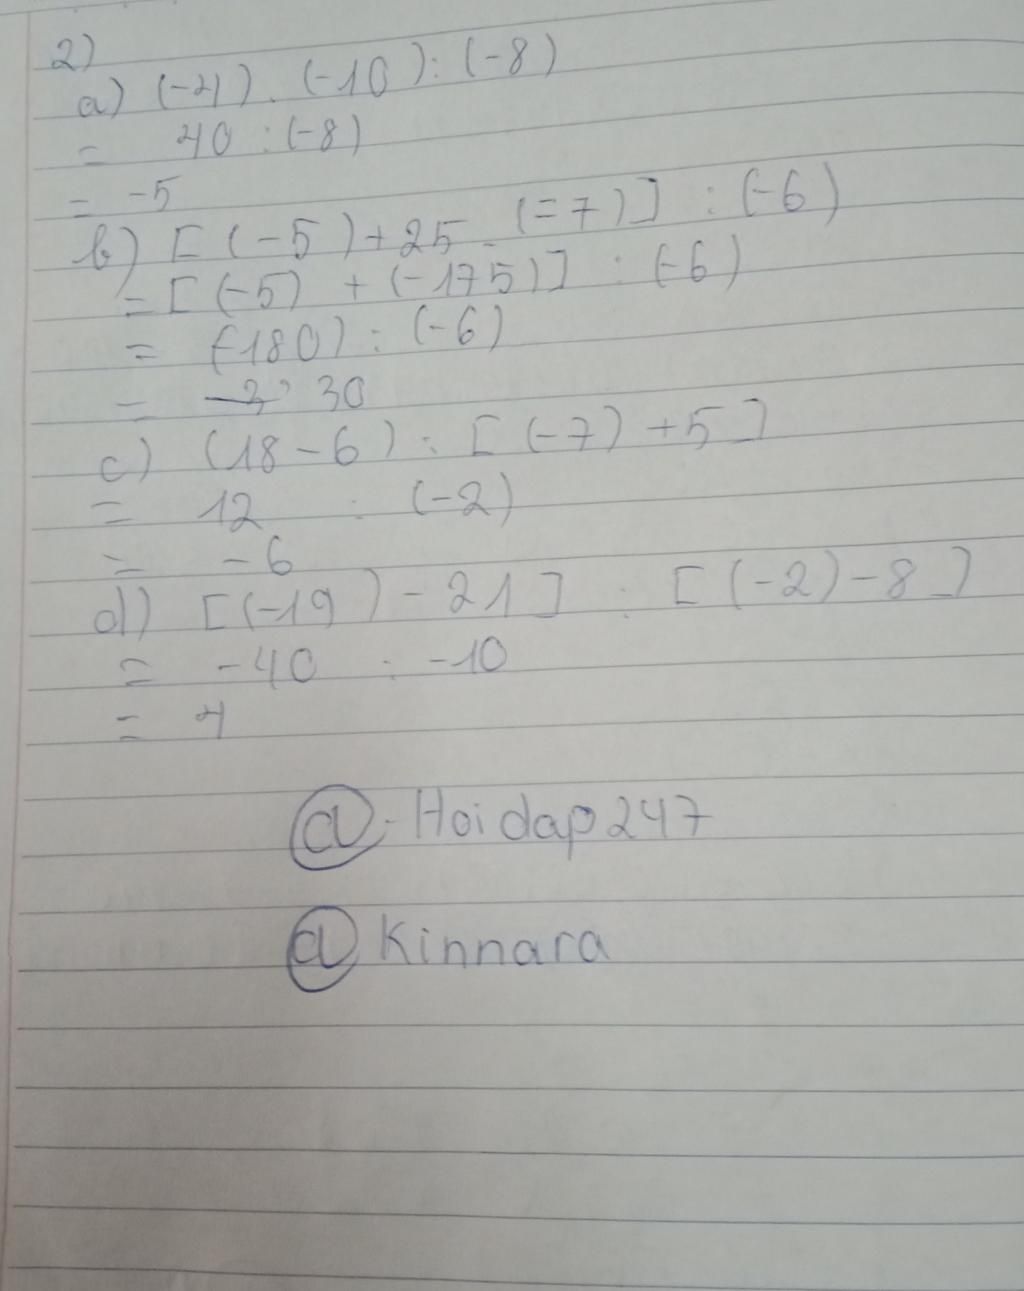 2)
a) (-4) . (-10) : (-8)
= 40 : (-8)
= -5
b) [ (-5) + 25 . (-7) ] : (-6)
= [ (-5) + (-175) ] : (-6)
= (-180) : (-6)
= 30
c) (18 - 6) : [ (-7) + 5 ]
= 12 : (-2)
= -6
d) [ (-19) - 21 ] : [ (-2) - 8 ]
= -40 : -10
= 4
@ - Hoidap247
@ Kinnara